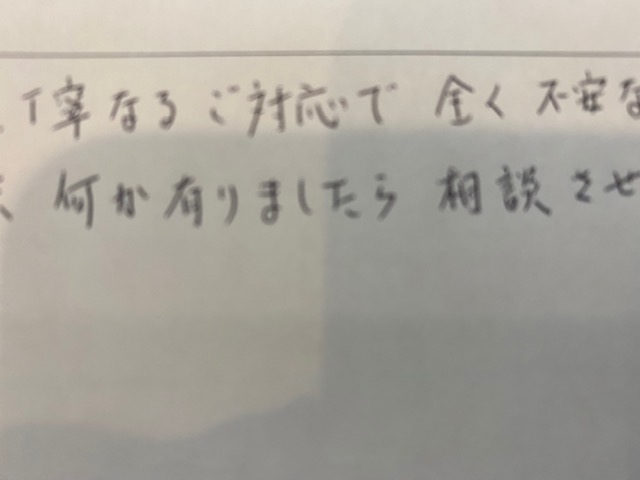 丁寧なるご対応で 全く 不安な
何か有りましたら 相談させ